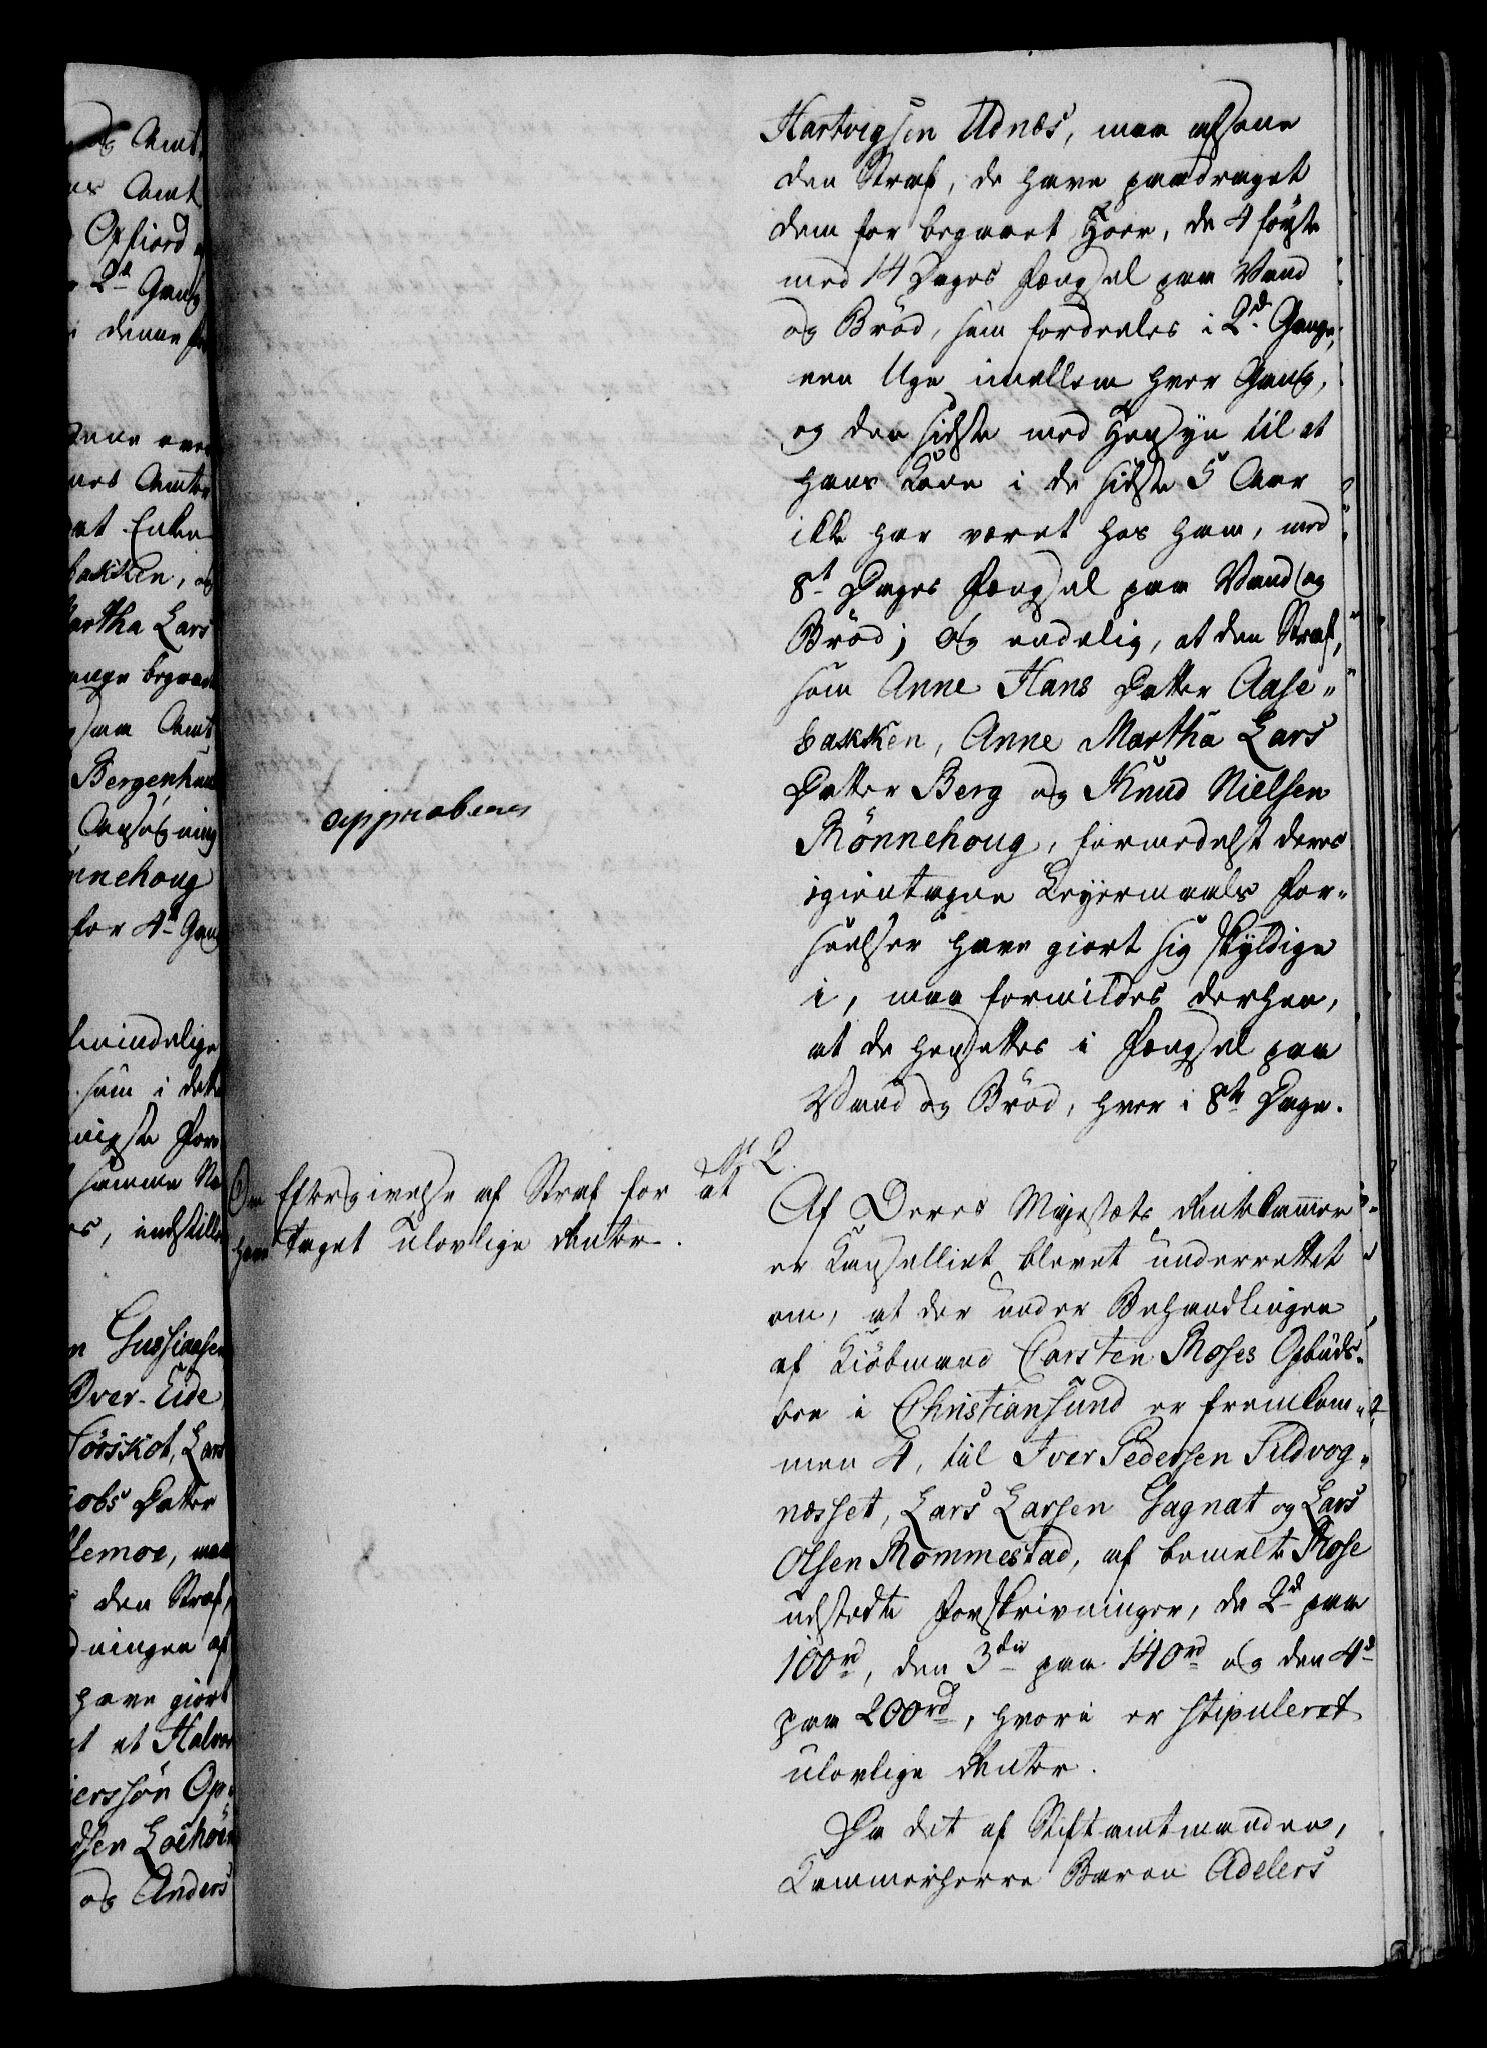 Hartvigsen Udnæs, maa afsone
den Straf, de have paadraget
dem for begaaet Hoer, de 4 første
med 14 Dages Fængsel paa Vand
og Brød, som fordeeles i 2de Gange,
een Uge imellem hver Gang,
og den sidste med Hensyn til at
hans Kone i de sidste 5 Aar
ikke har været hos ham, med
8t Dages Fængsel paa Vand og
Brød; og endelig, at den Straf,
som Anne Hans Datter Aase-
bakken, Anne Martha Lars
Datter Berg og Knud Nielsen
Rönnehoug, formedelst deres
igientagne Leyermaals For-
seelser have giort sig skyldige
i, maa formildes derhen,
at de hensettes i Fængsel paa
Vand og Brød, hver i 8te Dage.
approberes
2.
Om Eftergivelse af Straf for at
have taget ulovlige Renter.
Af Deres Majestæts Rentekammer
er Kancelliet blevet underrettet
om, at der under Behandlingen
af Kiøbmand Carsten Moses Opbuds-
boe i Christiansund er fremkom-
men 4, til Iver Pedersen Sildvog-
næsset, Lars Larsen Gagnat og Lars
Olsen Rommestad, af bemelte Mose
udstedte Forskrivninger, de 2de paa
100rd, den 3die paa 140rd og den 4de
paa 200rd, hvori er stipuleret
ulovlige Renter.
Da det af Stiftamtmanden,
Kammerherre Baron Adelers